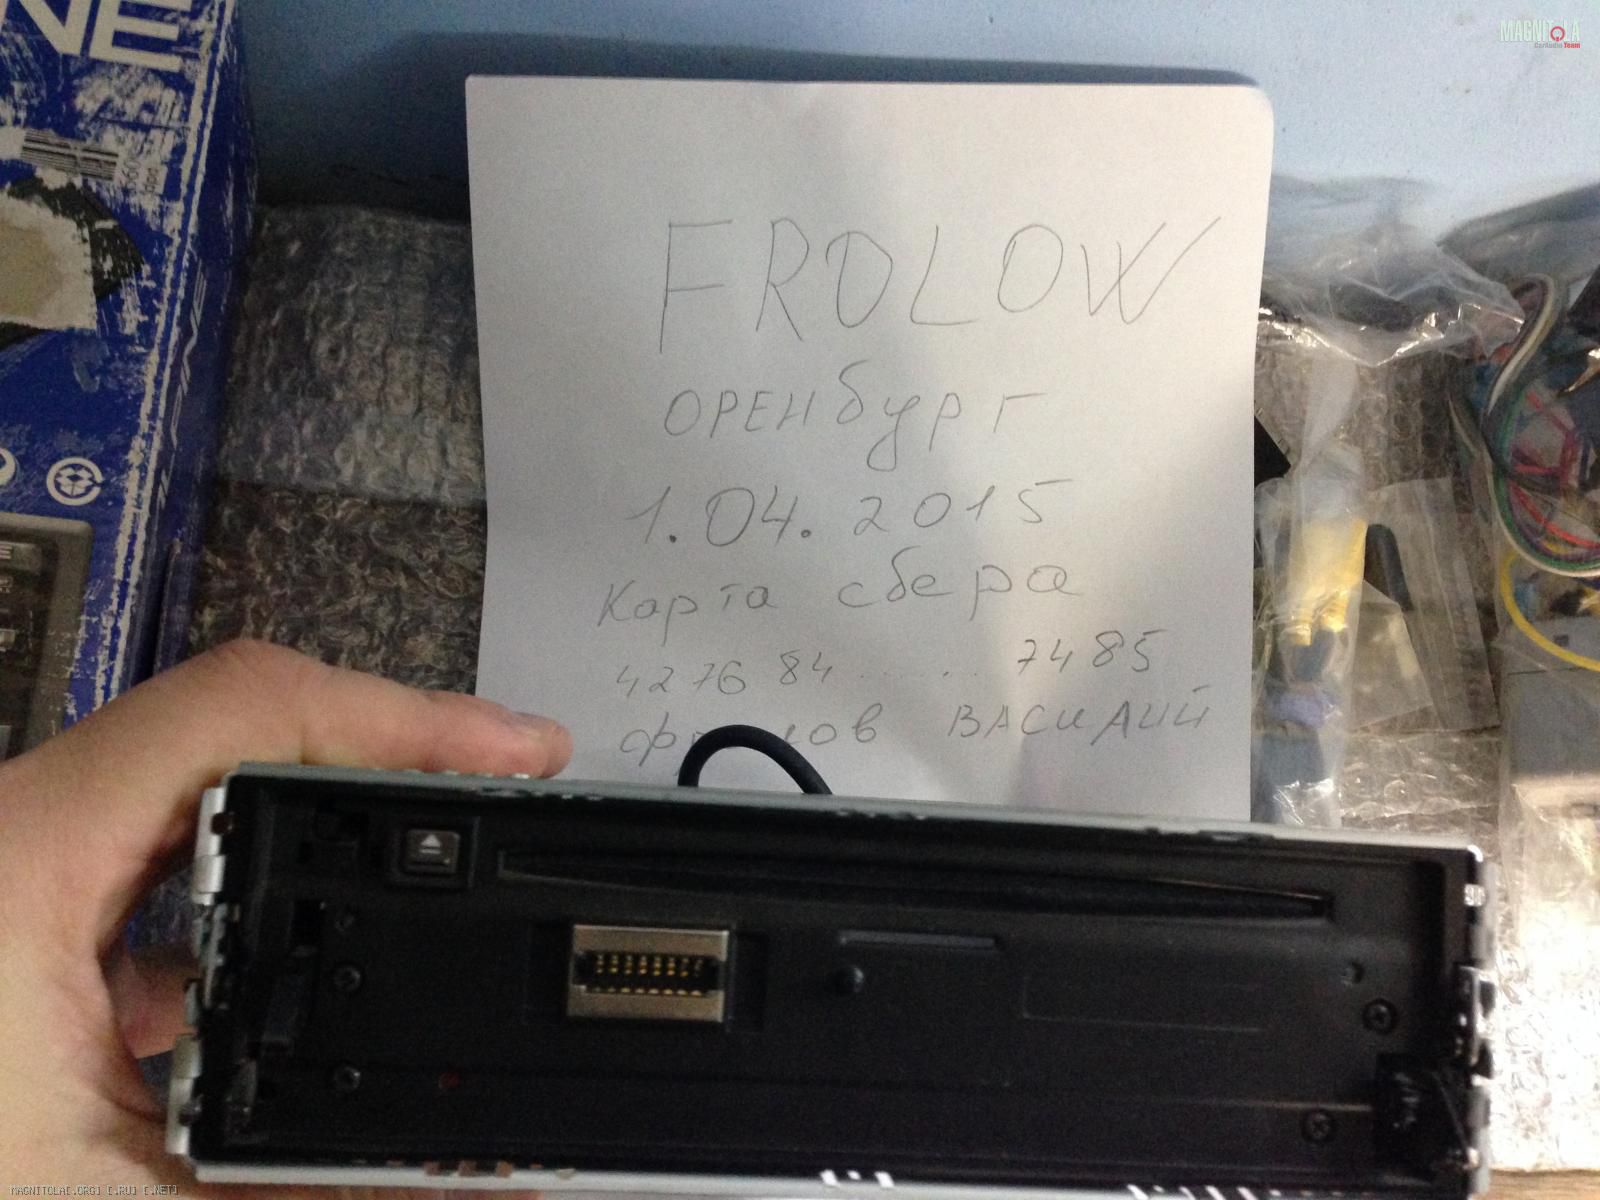 MAGNITOLA
CarAudio Team
FROLOW
ОРЕНбург
1.04.2015
Карта сбера
4276 84 ........ 7485
ВАСИЛИЙ
MAGNITOLA[.ORG] [.RU] [.NET]